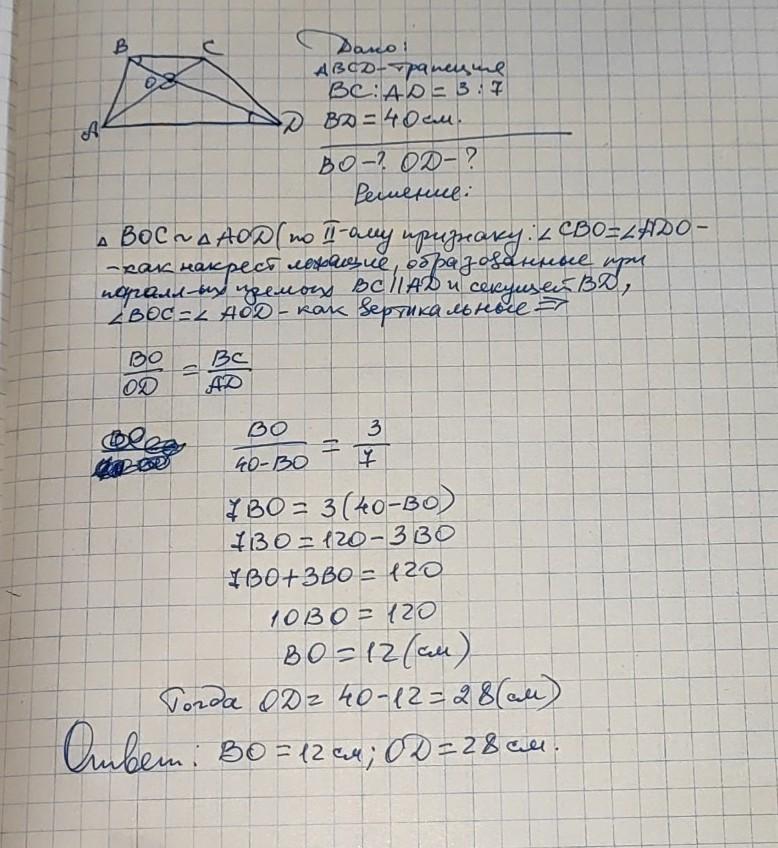 B C
O
A D
Дано:
ABCD-трапеция
BC:AD=3:7
BD=40см.
BO-? OD-?
Решение:
△ BOC ~ △ AOD (по II-ому признаку: ∠CBO=∠ADO-
-как накрест лежащие, образованные при
паралл-ых прямых BC||AD и секущей BD,
∠BOC=∠AOD-как вертикальные ⇒
BO/OD = BC/AD
BO/40-BO = 3/7
7BO=3(40-BO)
7BO=120-3BO
7BO+3BO=120
10BO=120
BO=12(см)
Тогда OD=40-12=28(см)
Ответ: BO=12см; OD=28см.